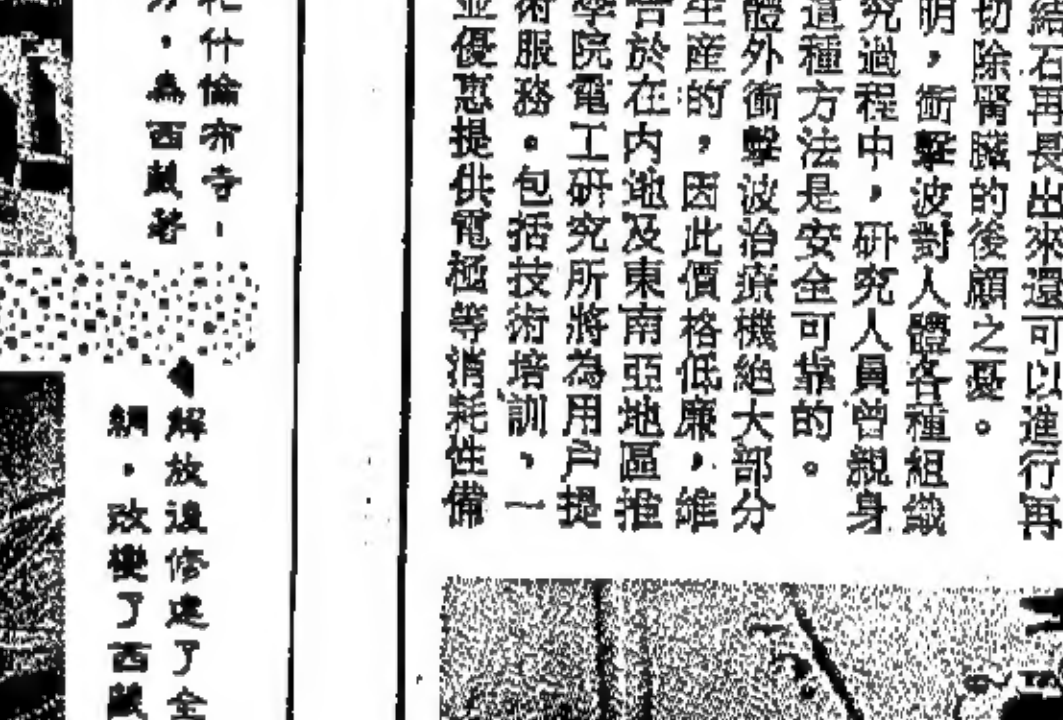 結石再長出來還可以進行再
切除腎臟的後顧之憂。
明，衝擊波對人體各種組織
究過程中，研究人員曾親身
這種方法是安全可靠的。
體外衝擊波治療機絕大部分
生産的，因此價格低廉，維
於在内地及東南亞地區推
學院電工研究所將為用户提
術服務。包括技術培訓、一
並優惠提供電極等消耗性備
什倫布寺，
，為西藏著
解放後修建了全
網，改變了西藏